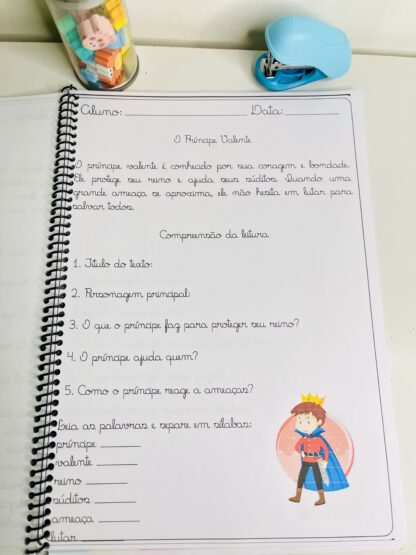 Aluno: ____________ Data: ________
O Príncipe Valente
O príncipe valente é conhecido por sua coragem e bondade.
Ele protege seu reino e ajuda seus súditos. Quando uma
grande ameaça se aproxima, ele não hesita em lutar para
salvar todos.
Compreensão da leitura
1. Título do texto:
2. Personagem principal:
3. O que o príncipe faz para proteger seu reino?
4. O príncipe ajuda quem?
5. Como o príncipe reage a ameaças?
Leia as palavras e separe em sílabas:
príncipe ______
valente ______
reino ______
súditos ______
ameaça ______
lutar ______